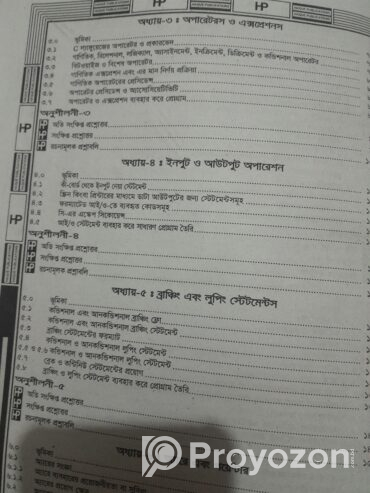 অধ্যায়-৩ : অপারেটরস ও এক্সপ্রেশনস
৩.০ ভূমিকা
৩.১ C ল্যাঙ্গুয়েজের অপারেটর ও প্রকারভেদ
৩.২ গাণিতিক, রিলেশনাল, লজিক্যাল, অ্যাসাইনমেন্ট, ইনক্রিমেন্ট, ডিক্রিমেন্ট ও কন্ডিশনাল অপারেটর
৩.৩ বিটওয়াইজ ও বিশেষ অপারেটর
৩.৪ গাণিতিক এক্সপ্রেশন এবং এর মান নির্ণয় প্রক্রিয়া
৩.৫ গাণিতিক অপারেটরের প্রেসিডেন্স
৩.৬ অপারেটর প্রেসিডেন্স ও অ্যাসোসিয়েটিভিটি
৩.৭ অপারেটর ও এক্সপ্রেশন ব্যবহার করে প্রোগ্রাম
অনুশীলনী-৩
অতি সংক্ষিপ্ত প্রশ্নোত্তর
সংক্ষিপ্ত প্রশ্নোত্তর
রচনামূলক প্রশ্নাবলি
অধ্যায়-৪ : ইনপুট ও আউটপুট অপারেশন
৪.০ ভূমিকা
৪.১ কী-বোর্ড থেকে ইনপুট নেয়া স্টেটমেন্ট
৪.২ স্ক্রিন কিংবা প্রিন্টারের মাধ্যমে ডাটা আউটপুটের জন্য স্টেটমেন্টসমূহ
৪.৩ ফরম্যাটেড আই/ও-তে ব্যবহৃত কোডসমূহ
৪.৪ সি-এর এস্কেপ সিকোয়েন্স
৪.৫ আই/ও স্টেটমেন্ট ব্যবহার করে সাধারণ প্রোগ্রাম তৈরি
অনুশীলনী-৪
অতি সংক্ষিপ্ত প্রশ্নোত্তর
সংক্ষিপ্ত প্রশ্নোত্তর
রচনামূলক প্রশ্নাবলি
অধ্যায়-৫ : ব্রাঞ্চিং এবং লুপিং স্টেটমেন্টস
৫.০ ভূমিকা
৫.১ কন্ডিশনাল এবং আনকন্ডিশনাল ব্রাঞ্চিং ফ্লো
৫.২ কন্ডিশনাল এবং আনকন্ডিশনাল ব্রাঞ্চিং স্টেটমেন্ট
৫.৩ ব্রাঞ্চিং স্টেটমেন্টের ফরম্যাট
৫.৪ কন্ডিশনাল ও আনকন্ডিশনাল লুপিং স্টেটমেন্ট
৫.৫ ও ৫.৬ কন্ডিশনাল ও আনকন্ডিশনাল লুপিং স্টেটমেন্ট
৫.৭ ব্রেক ও কন্টিনিউ স্টেটমেন্টের প্রয়োগ
৫.৮ ব্রাঞ্চিং ও লুপিং স্টেটমেন্ট ব্যবহার করে প্রোগ্রাম তৈরি
অনুশীলনী-৫
অতি সংক্ষিপ্ত প্রশ্নোত্তর
সংক্ষিপ্ত প্রশ্নোত্তর
রচনামূলক প্রশ্নাবলি
Proyozon
৬.০ ভূমিকা
৬.১ অ্যারে
৬.১.১ অ্যারের সংজ্ঞা